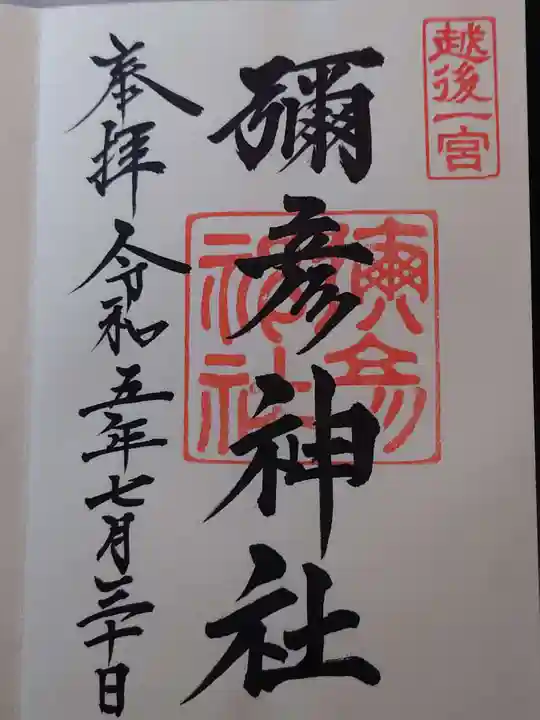 越後一宮
彌彦神社
彌彦神社
奉拝 令和五年七月三十日